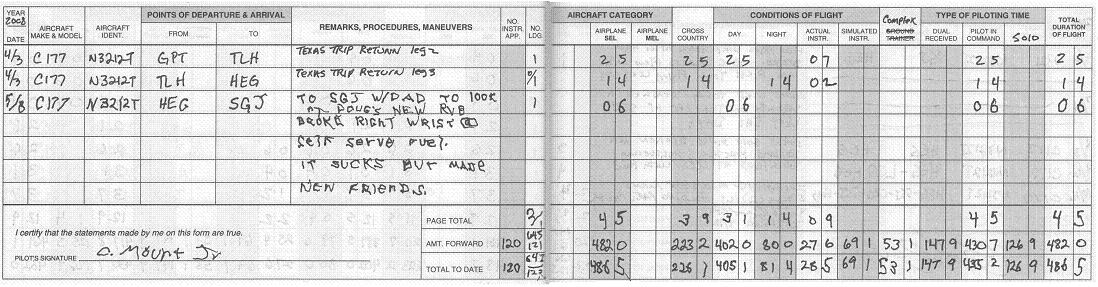 YEAR 2008 DATE AIRCRAFT MAKE & MODEL AIRCRAFT IDENT. POINTS OF DEPARTURE & ARRIVAL FROM TO REMARKS, PROCEDURES, MANEUVERS NO. INSTR. APP. NO. LDG. AIRCRAFT CATEGORY AIRPLANE SEL AIRPLANE MEL CONDITIONS OF FLIGHT CROSS COUNTRY DAY NIGHT ACTUAL INSTR. SIMULATED INSTR. Complex GROUND TRAINER TYPE OF PILOTING TIME DUAL RECEIVED PILOT IN COMMAND SOLO TOTAL DURATION OF FLIGHT
4/3 C177 N3212T GPT TLH TEXAS TRIP RETURN leg 2 1 2 5 2 5 2 5 0 7 2 5 2 5
4/3 C177 N3212T TLH HEG TEXAS TRIP RETURN leg 3 0/1 1 4 1 4 1 4 0 2 1 4 1 4
5/8 C177 N3212T HEG SGJ TO SGJ W/DAD TO look 1 0 6 0 6 0 6 0 6
AT DOUG'S NEW RV8
BROKE RIGHT WRIST @
Self serve fuel.
IT SUCKS BUT MADE
NEW FRIENDS.
PAGE TOTAL 2/1 4 5 3 9 3 1 1 4 0 9 4 5 4 5
I certify that the statements made by me on this form are true.
AMT. FORWARD 120 645 121 482 0 223 2 402 0 80 0 27 6 69 1 53 1 147 9 430 7 126 9 482 0
PILOT'S SIGNATURE C. Mount Jr
TOTAL TO DATE 120 647 122 486 5 405 1 81 4 28 5 69 1 53 1 147 9 435 2 126 9 486 5